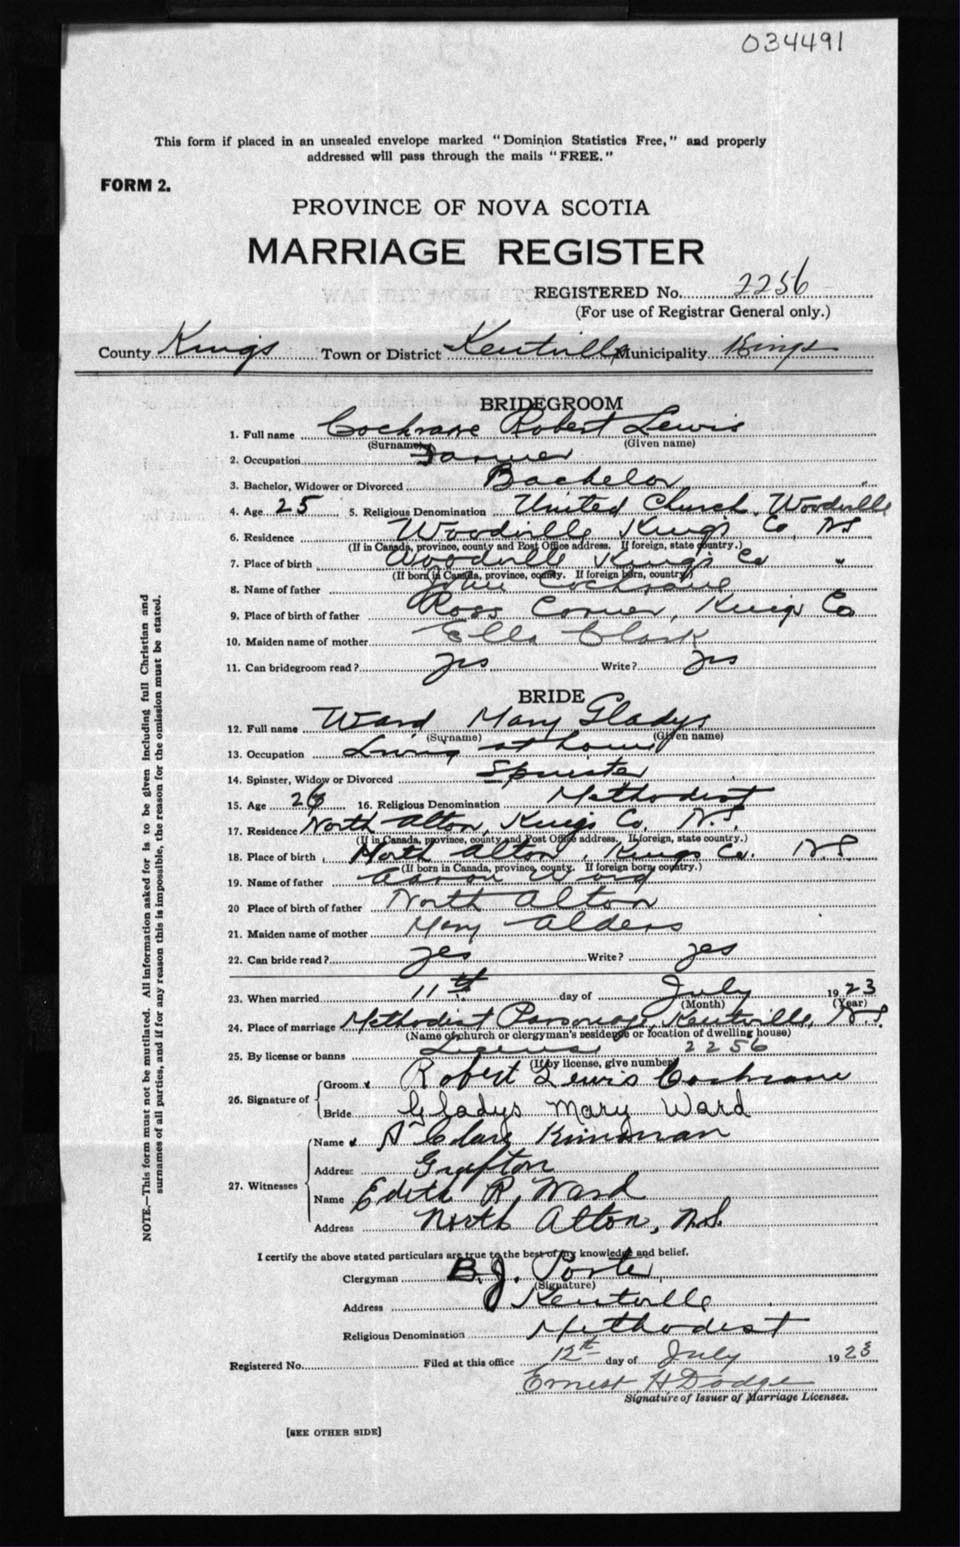 034491
This form if placed in an unsealed envelope marked "Dominion Statistics Free," and properly
addressed will pass through the mails "FREE."
FORM 2.
PROVINCE OF NOVA SCOTIA
MARRIAGE REGISTER
REGISTERED No. 2256
(For use of Registrar General only.)
County Kings Town or District Kentville Municipality Kings
BRIDEGROOM
1. Full name Cochrane Robert Lewis
(Surname) (Given name)
2. Occupation Farmer
3. Bachelor, Widower or Divorced Bachelor
4. Age 25 5. Religious Denomination United Church, Woodville
6. Residence Woodville Kings Co, NS
(If in Canada, province, county and Post Office address. If foreign, state country.)
7. Place of birth Woodville Kings Co "
(If born in Canada, province, county. If foreign born, country)
8. Name of father John Cochrane
9. Place of birth of father Ross Corner, Kings Co
10. Maiden name of mother Ella Clark
11. Can bridegroom read? yes Write? yes
BRIDE
12. Full name Ward, Mary Gladys
(Surname) (Given name)
13. Occupation Living at home
14. Spinster, Widow or Divorced Spinster
15. Age 26 16. Religious Denomination Methodist
17. Residence North Alton, Kings Co, N.S.
(If in Canada, province, county and Post Office address. If foreign, state country.)
18. Place of birth North Alton, Kings Co. N.S
(If born in Canada, province, county. If foreign born, country.)
19. Name of father Ward
20 Place of birth of father North Alton
21. Maiden name of mother Mary Alders
22. Can bride read? yes Write? yes
23. When married 11th day of July 1923
(Month) (Year)
24. Place of marriage Methodist Parsonage, Kentville, N.S.
(Name of church or clergyman's residence or location of dwelling house)
25. By license or banns License 2256
(If by license, give number)
26. Signature of
Groom Robert Lewis Cochrane
Bride Gladys Mary Ward
27. Witnesses
Name A Clare Kinsman
Address Grafton
Name Edith R. Ward
Address North Alton, N.S.
I certify the above stated particulars are true to the best of my knowledge and belief.
Clergyman B.J. Porter
(Signature)
Address Kentville
Religious Denomination Methodist
Registered No. Filed at this office 12th day of July 1923
Ernest H Dodge
Signature of Issuer of Marriage Licenses.
[SEE OTHER SIDE]
NOTE.—This form must not be mutilated. All information asked for is to be given including full Christian and
surnames of all parties, and if for any reason this is impossible, the reason for the omission must be stated.